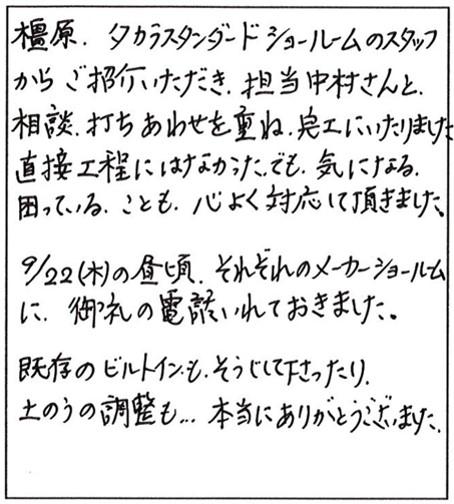 橿原．タカラスタンダードショールームのスタッフ
からご紹介いただき．担当中村さんと．
相談．打ちあわせを重ね．完工にいたりました
直接工程にはなかった．でも．気になる．
困っている．ことも．心よく対応して頂きました。
9/22(木)の昼頃．それぞれのメーカーショールーム
に．御礼の電話いれておきました。
既存のビルトインも．そうじして下さったり．
土のうの調整も…本当にありがとうございました．